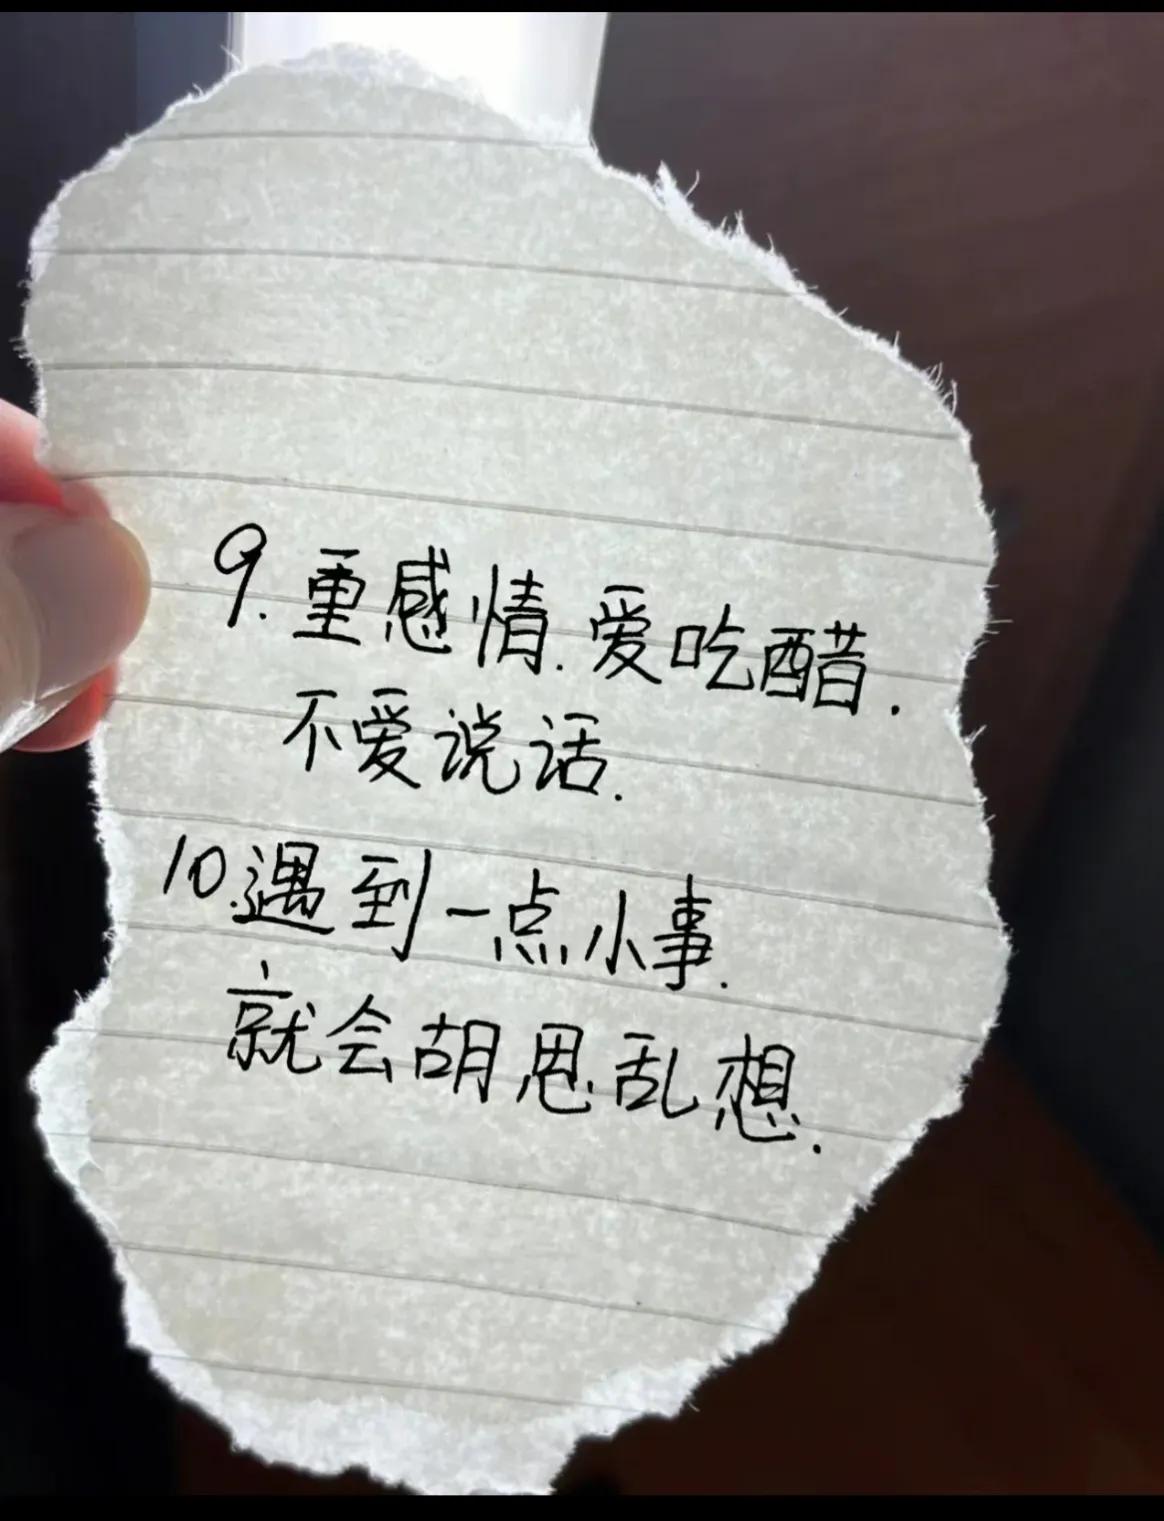 9.重感情.爱吃醋.
不爱说话.
10.遇到一点小事.
就会胡思乱想.